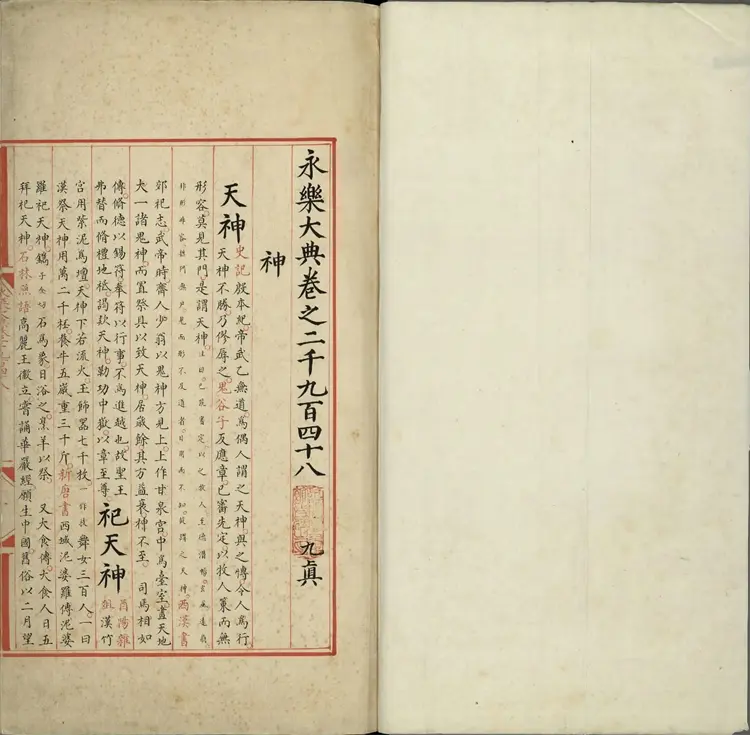 永樂大典卷之二千九百四十八 九眞
神
天神
史記殷本紀帝武乙無道爲偶人謂之天神與之博令人爲行
天神不勝乃僇辱之鬼谷子反應章已審先定以牧人策而無
形容莫見其門是謂天神
注曰己能審定以之牧人至德潛暢玄風遠扇
非形非容無門無戶見而形不及道者日用而不知故謂之天神
西漢書
郊祀志武帝時齊人少翁以鬼神方見上上作甘泉宮中爲臺室畫天地
大一諸鬼神而置祭具以致天神居歲餘其方益衰神不至 司馬相如
傳脩德以錫符奉符以行事不爲進越也故聖王
弗替而脩禮地祗謁款天神勒功中嶽以章至尊
祀天神
酉陽雜
俎漢竹
宮用紫泥爲壇天神下若流火玉飾器七千枚一作枝舞女三百人一曰
漢祭天神用萬二千杯養牛五歲重三千斤新唐書西域泥婆羅傳泥婆
羅祀天神鐫子全切石爲象日浴之烹羊以祭 又大食傳大食人日五
拜祀天神石林燕語高麗王徽立嘗誦華嚴經願生中國舊俗以二月望